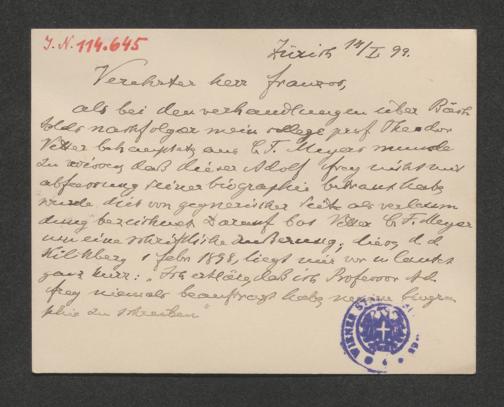 J. N. 114.645
Zürich 14/I 99.
Verehrter herr franzos,
als bei den verhandlungen über Bäch
tolds nachfolger mein college prof. Theodor
Vetter behauptete aus C. F. Meyers munde
zu wissen daß dieser Adolf frey nicht mit
abfassung seiner biographie betraut habe
wurde dies von gegnerischer seite als verleum
dung bezeichnet. Darauf bat Vetter C. F. Meyer
um eine schriftliche äußerung; diese d. d.
Kilchberg 1 febr. 1898, liegt mir vor u. lautet
ganz kurz: „Ich erkläre daß ich Professor Ad.
frey niemals beauftragt habe meine biogra
phie zu schreiben"
WIENER